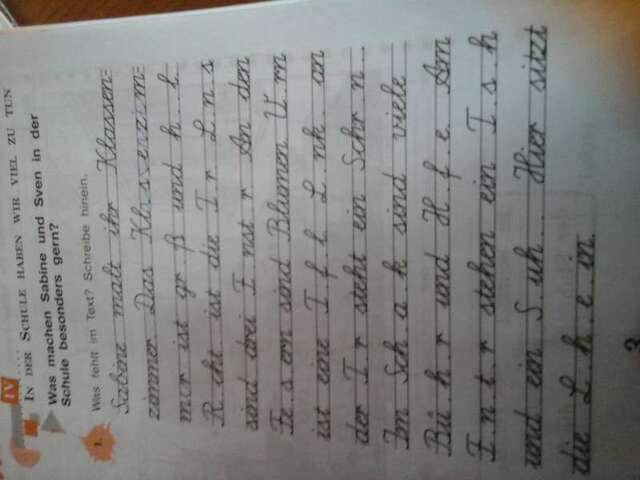 IV
IN DER SCHULE HABEN WIR VIEL ZU TUN
Was machen Sabine und Sven in der
Schule besonders gern?
1. Was fehlt im Text? Schreibe hinein.
Sabine malt ihr Klassen-
zimmer. Das Kl.s.enzim-
mer ist gr.ß und h.l.
R.cht. ist die T.r. L.n.s
sind drei F.nst.r. An den
Fe.s.ern sind Blumen. V.rn
ist eine T.f.l. L.nk. an
der T.r steht ein Schr.n..
Im Sch.a.k sind viele
Bü.h.r und H.f.e. Am
F.n.t.r stehen ein T.s.h
und ein S.uh.. Hier sitzt
die L.h.e.in.
3